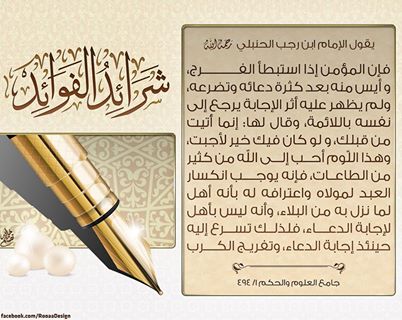 شرائد الفوائد
يقول الإمام ابن رجب الحنبلي رحمه الله
فإن المؤمن إذا استبطأ الفرج،
و أيس منه بعد كثرة دعائه وتضرعه،
ولم يظهر عليه أثر الإجابة يرجع إلى
نفسه باللائمة، وقال لها: إنما أتيت
من قبلك، و لو كان فيك خير لأجبت،
وهذا اللوم أحب إلى الله من كثير
من الطاعات، فإنه يوجب انكسار
العبد لمولاه واعترافه له بأنه أهل
لما نزل به من البلاء، وأنه ليس بأهل
لإجابة الدعاء، فلذلك تسرع إليه
حينئذ إجابة الدعاء، وتفريج الكرب
جامع العلوم والحكم ١/ ٤٩٤
facebook.com/RonaaDesign